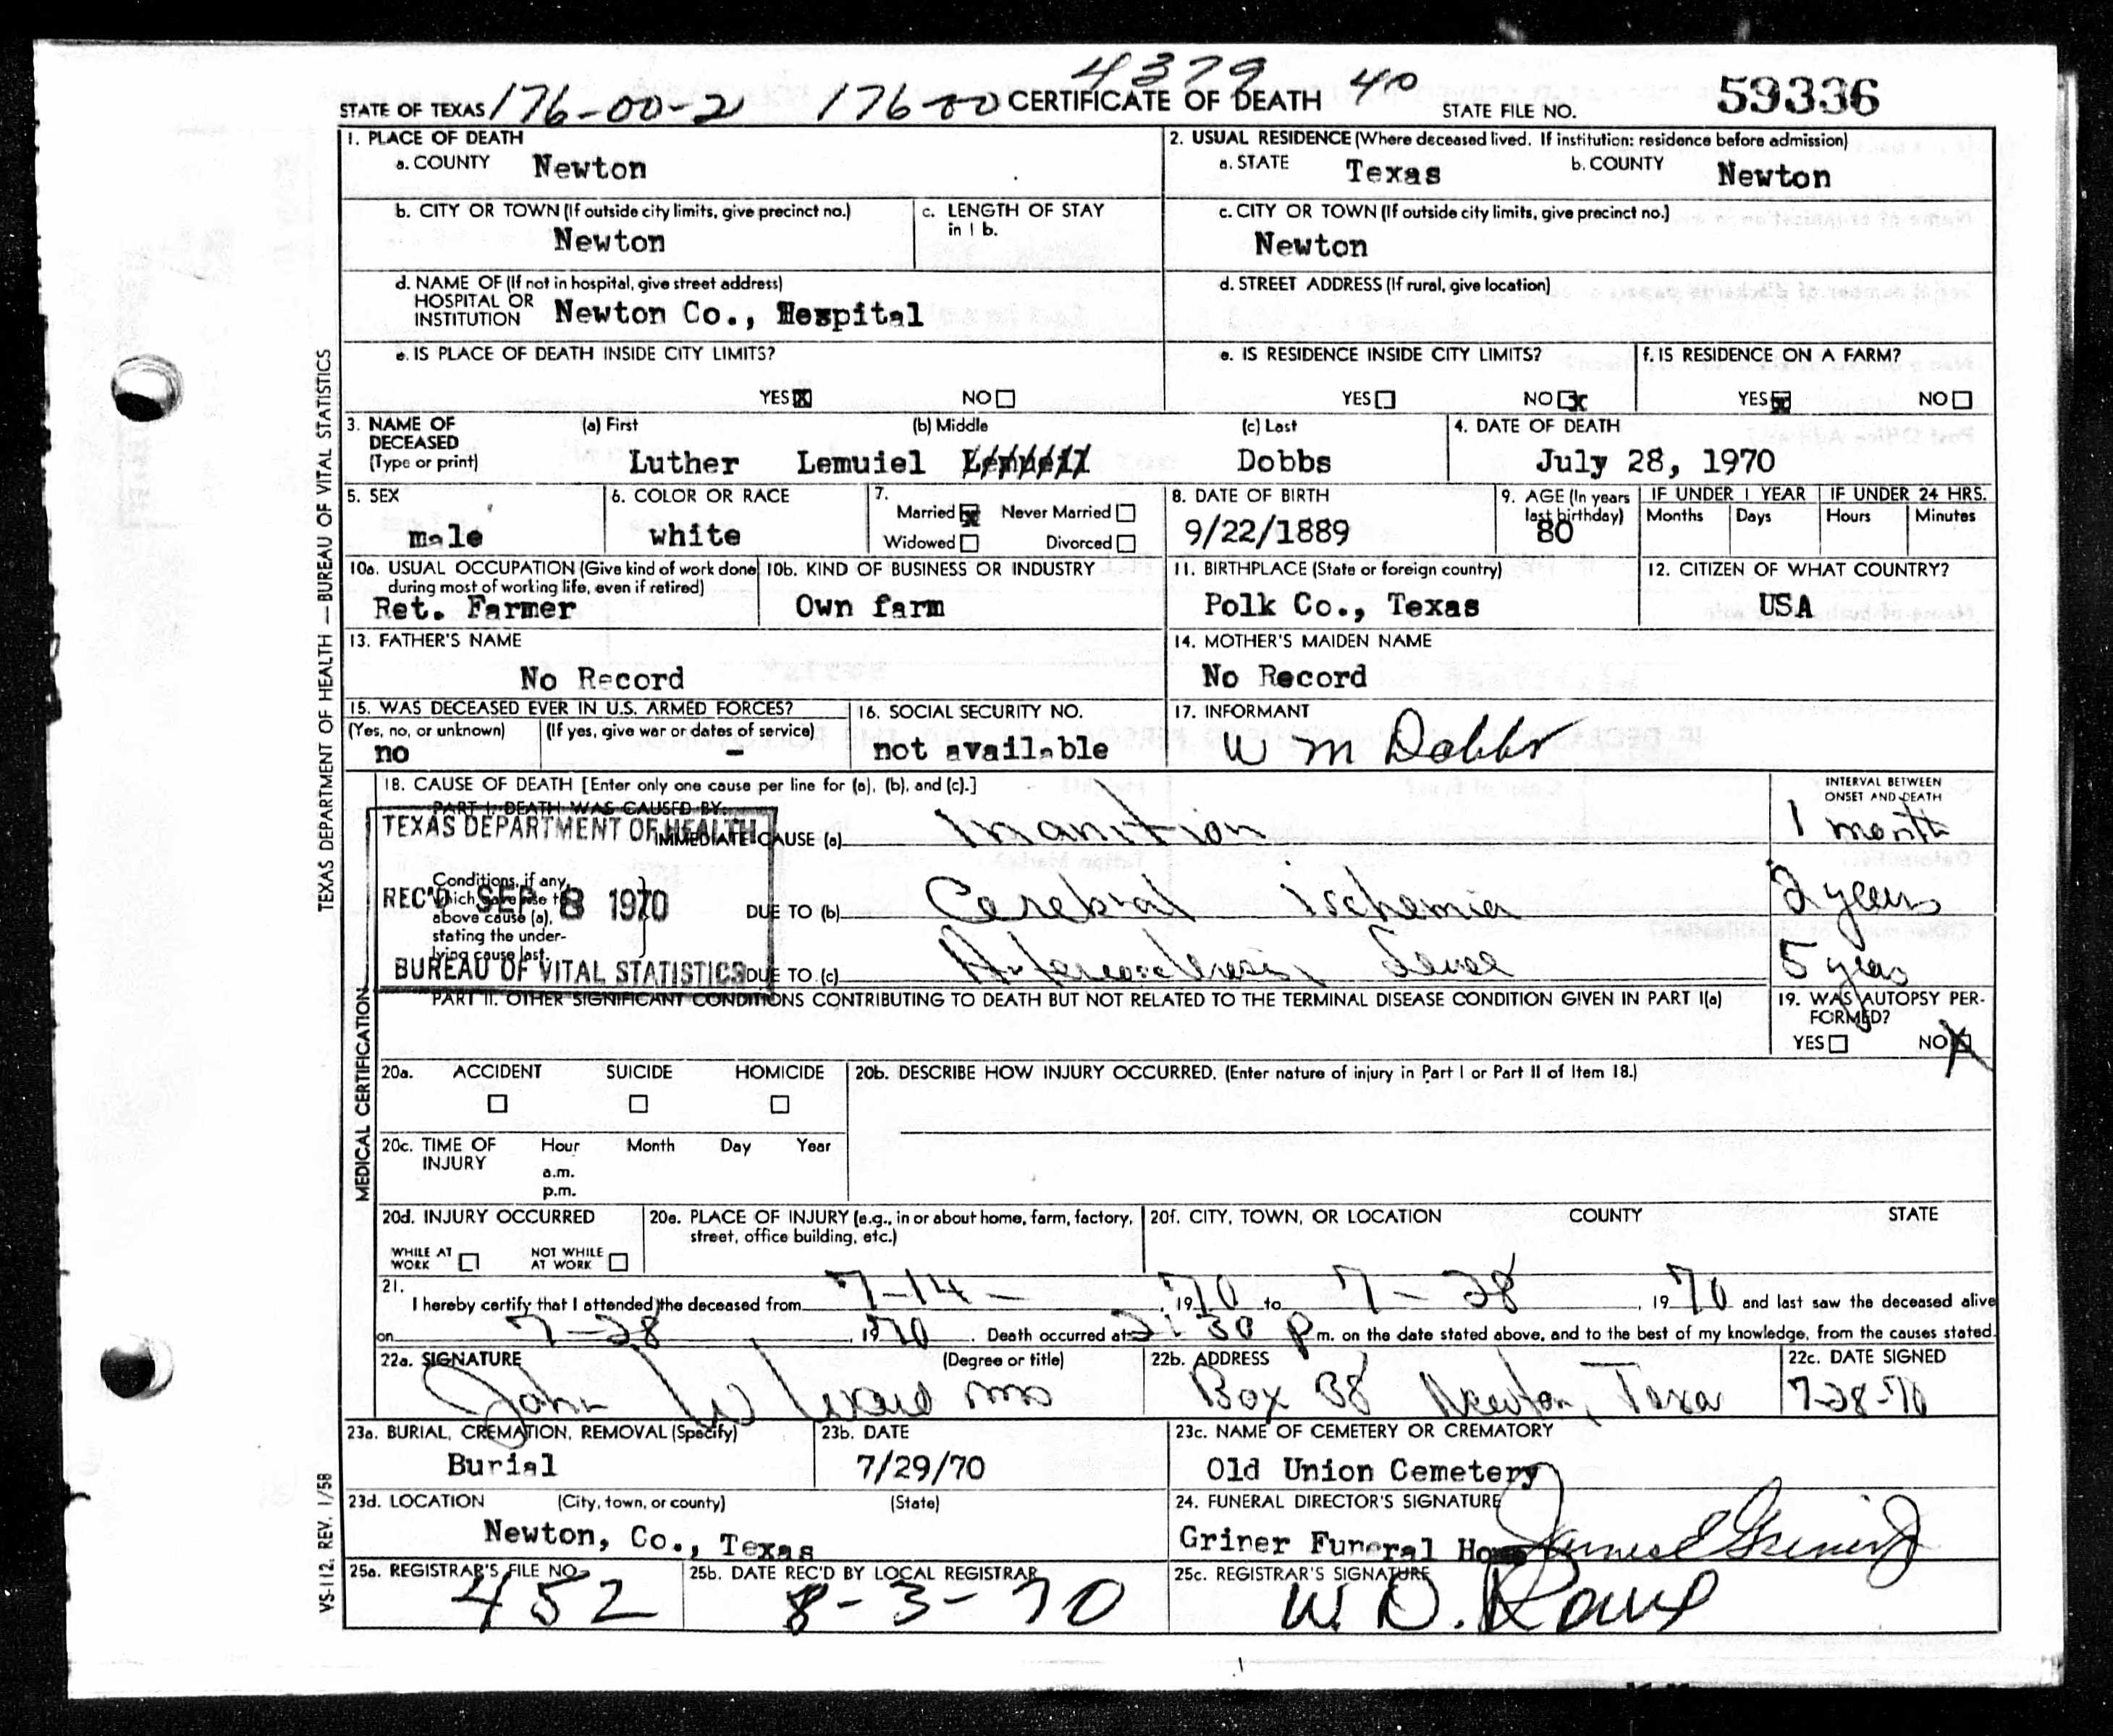 4379
STATE OF TEXAS 176-00-2 176-00 CERTIFICATE OF DEATH 40 STATE FILE NO. 59336
1. PLACE OF DEATH
a. COUNTY Newton
2. USUAL RESIDENCE (Where deceased lived. If institution: residence before admission)
a. STATE Texas b. COUNTY Newton
b. CITY OR TOWN (If outside city limits, give precinct no.)
Newton
c. LENGTH OF STAY
in 1 b.
c. CITY OR TOWN (If outside city limits, give precinct no.)
Newton
d. NAME OF (If not in hospital, give street address)
HOSPITAL OR
INSTITUTION Newton Co., Hospital
d. STREET ADDRESS (If rural, give location)
e. IS PLACE OF DEATH INSIDE CITY LIMITS?
YES X NO
e. IS RESIDENCE INSIDE CITY LIMITS?
YES NO x
f. IS RESIDENCE ON A FARM?
YES x NO
3. NAME OF
DECEASED
(Type or print)
(a) First (b) Middle (c) Last
Luther Lemuiel Dobbs
4. DATE OF DEATH
July 28, 1970
5. SEX
male
6. COLOR OR RACE
white
7.
Married x Never Married
Widowed Divorced
8. DATE OF BIRTH
9/22/1889
9. AGE (In years
last birthday)
80
IF UNDER 1 YEAR
Months Days
IF UNDER 24 HRS.
Hours Minutes
10a. USUAL OCCUPATION (Give kind of work done
during most of working life, even if retired)
Ret. Farmer
10b. KIND OF BUSINESS OR INDUSTRY
Own farm
11. BIRTHPLACE (State or foreign country)
Polk Co., Texas
12. CITIZEN OF WHAT COUNTRY?
USA
13. FATHER'S NAME
No Record
14. MOTHER'S MAIDEN NAME
No Record
15. WAS DECEASED EVER IN U.S. ARMED FORCES?
(Yes, no, or unknown) (If yes, give war or dates of service)
no -
16. SOCIAL SECURITY NO.
not available
17. INFORMANT
W M Dobbs
18. CAUSE OF DEATH [Enter only one cause per line for (a), (b), and (c).]
INTERVAL BETWEEN
ONSET AND DEATH
PART I. DEATH WAS CAUSED BY:
IMMEDIATE CAUSE (a) Inanition 1 month
Conditions, if any,
which gave rise to
above cause (a),
stating the under-
lying cause last.
DUE TO (b) Cerebral ischemia 2 years
DUE TO (c) 5 years
TEXAS DEPARTMENT OF HEALTH
REC'D SEP 8 1970
BUREAU OF VITAL STATISTICS
PART II. OTHER SIGNIFICANT CONDITIONS CONTRIBUTING TO DEATH BUT NOT RELATED TO THE TERMINAL DISEASE CONDITION GIVEN IN PART I(a)
19. WAS AUTOPSY PER-
FORMED?
YES NO X
20a. ACCIDENT SUICIDE HOMICIDE
20b. DESCRIBE HOW INJURY OCCURRED. (Enter nature of injury in Part I or Part II of Item 18.)
20c. TIME OF
INJURY
Hour Month Day Year
a.m.
p.m.
20d. INJURY OCCURRED
WHILE AT
WORK
NOT WHILE
AT WORK
20e. PLACE OF INJURY (e.g., in or about home, farm, factory,
street, office building, etc.)
20f. CITY, TOWN, OR LOCATION COUNTY STATE
21.
I hereby certify that I attended the deceased from 7-14-, 1970 to 7-28, 1970 and last saw the deceased alive
on 7-28, 1970. Death occurred at 2:30 P m. on the date stated above, and to the best of my knowledge, from the causes stated.
22a. SIGNATURE (Degree or title)
John W Ward MD
22b. ADDRESS
Box 38 Newton, Texas
22c. DATE SIGNED
7-28-70
23a. BURIAL, CREMATION, REMOVAL (Specify)
Burial
23b. DATE
7/29/70
23c. NAME OF CEMETERY OR CREMATORY
Old Union Cemetery
23d. LOCATION (City, town, or county) (State)
Newton, Co., Texas
24. FUNERAL DIRECTOR'S SIGNATURE
Griner Funeral Home James E Griner Jr
25a. REGISTRAR'S FILE NO.
452
25b. DATE REC'D BY LOCAL REGISTRAR
8-3-70
25c. REGISTRAR'S SIGNATURE
W. D.
TEXAS DEPARTMENT OF HEALTH — BUREAU OF VITAL STATISTICS
MEDICAL CERTIFICATION
VS-112, REV. 1/58